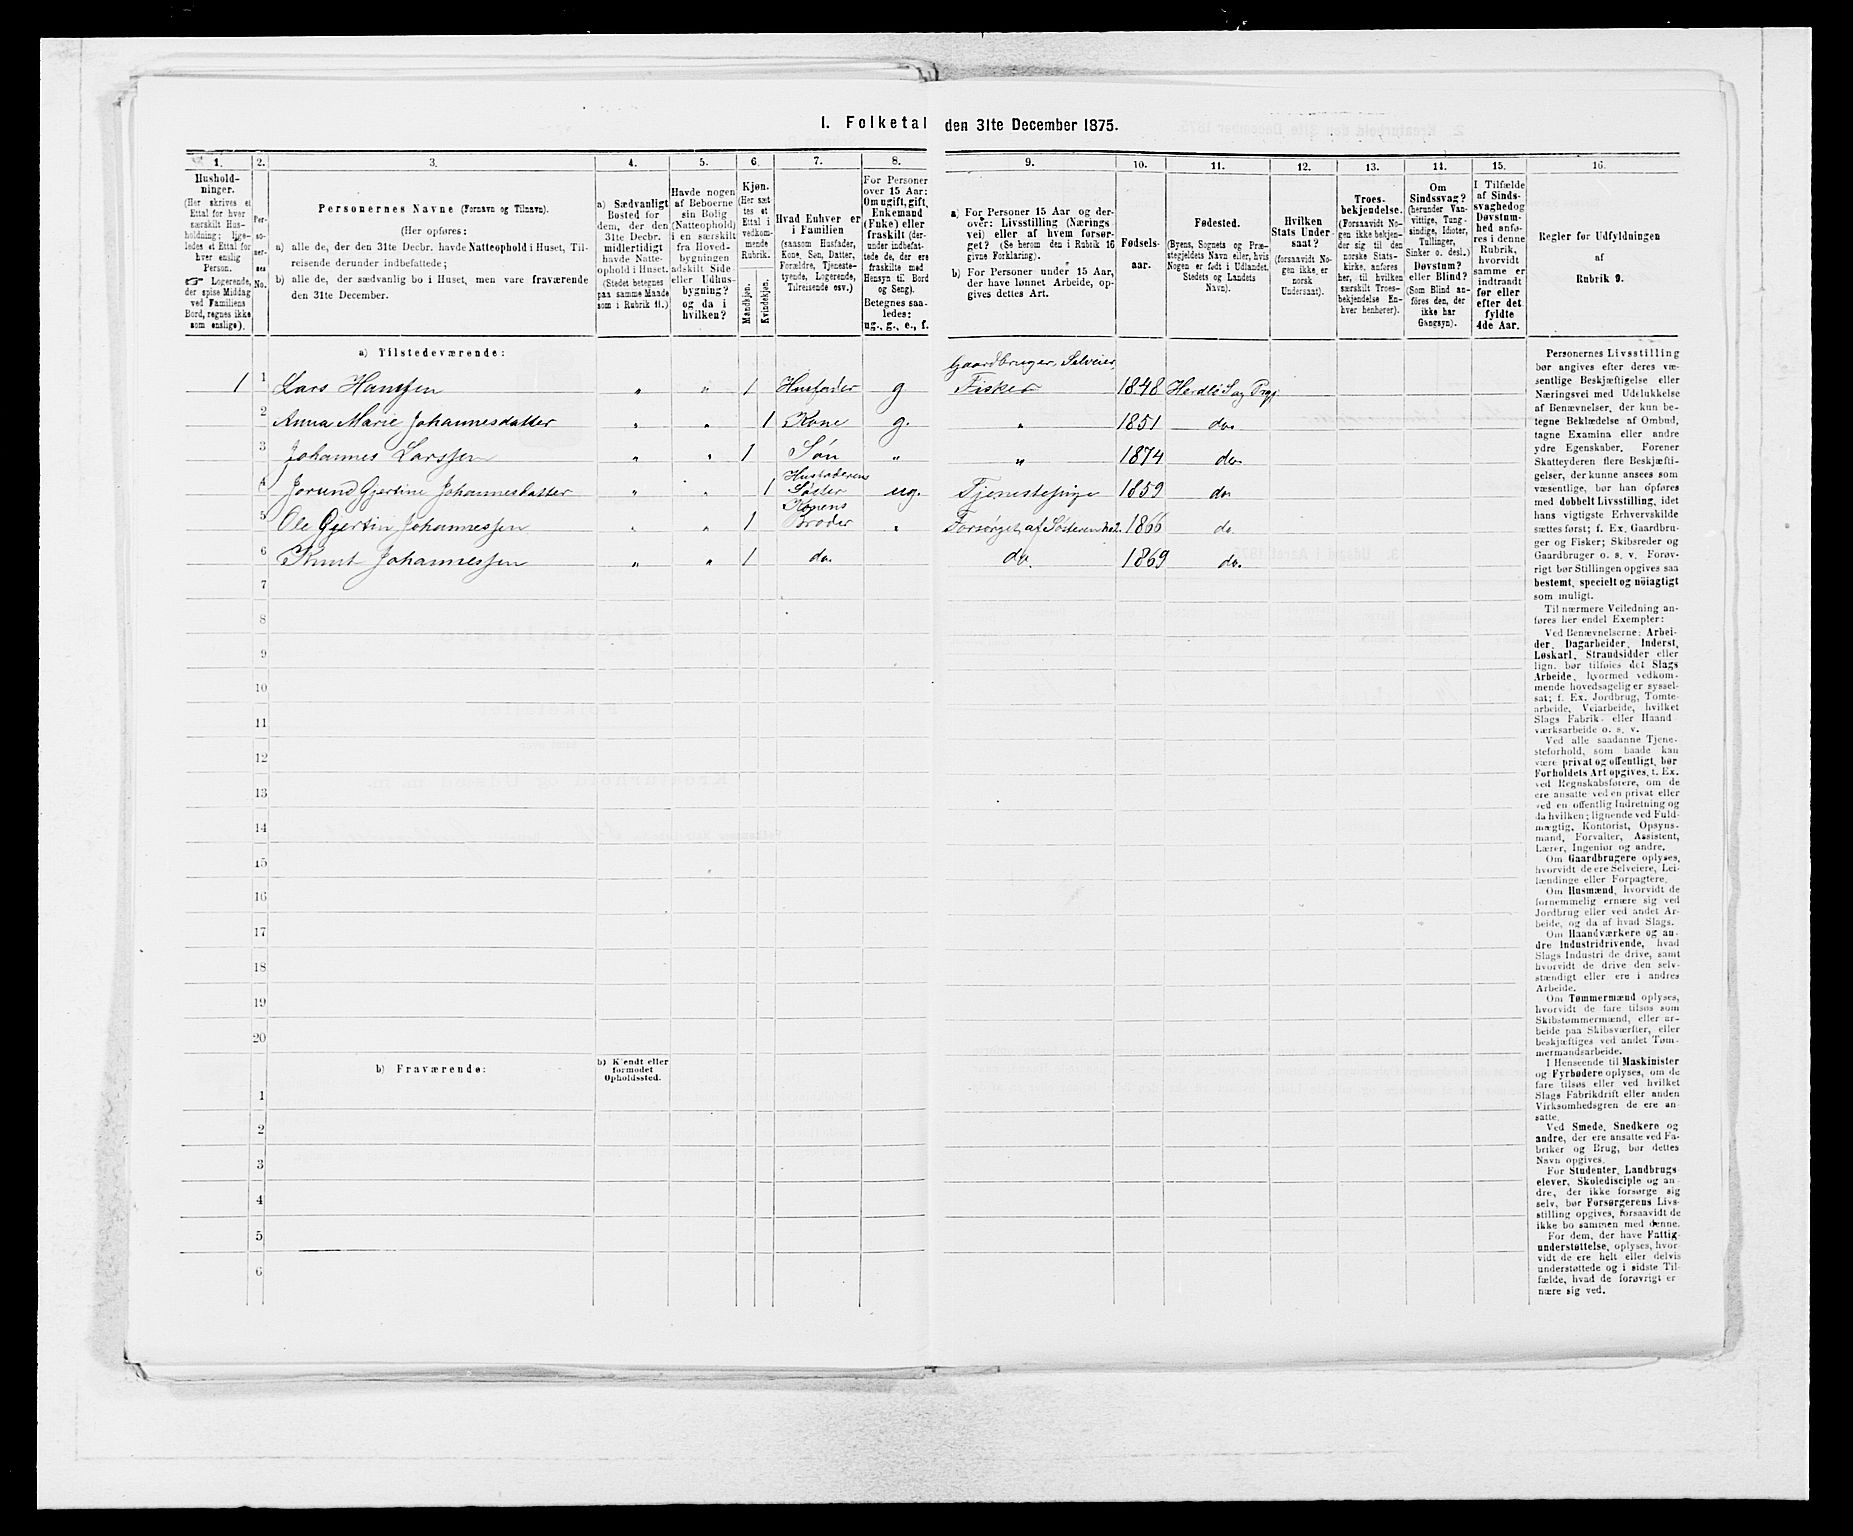 I. Folketal den 31te December 1875.
1. 2. 3. 4. 5. 6. 7. 8. 9. 10. 11. 12. 13. 14. 15. 16.
Hushold-
ninger.
(Her skrives et
Ettal for hver
særskilt Hus-
holdning; lige-
ledes et Ettal for
hver enslig
Person.
☞ Logerende,
der spise Middag
ved Familiens
Bord, regnes ikke
som enslige).
Per-
so-
ner-
nes
No.
Personernes Navne (Fornavn og Tilnavn).
(Her opføres:
a) alle de, der den 31te Decbr. havde Natteophold i Huset, Til-
reisende derunder indbefattede;
b) alle de, der sædvanlig bo i Huset, men vare fraværende
den 31te December.
a) Sædvanligt
Bosted for
dem, der den
31te Decbr.
midlertidigt
havde Natte-
ophold i Huset.
(Stedet betegnes
paa samme Maade
som i Rubrik 11.)
Havde nogen
af Beboerne
sin Bolig
(Natteophold)
i en særskilt
fra Hoved-
bygningen
adskilt Side
eller Udhus-
bygning?
og da i
hvilken?
Kjøn.
(Her sæt
tes et
Ettal i
vedkom-
mende
Rubrik.
Mandkjøn.
Kvindekjøn.
Hvad Enhver er
i Familien
(saasom Husfader,
Kone, Søn, Datter,
Forældre, Tjeneste-
tyende, Logerende,
Tilreisende osv.)
For Personer
over 15 Aar:
Om ugift, gift,
Enkemand
(Enke) eller
fraskilt (der-
under indbefat-
tede de, der ere
fraskilte med
Hensyn til Bord
og Seng).
Betegnes saa-
ledes:
ug., g., e., f.
a) For Personer 15 Aar og der-
over: Livsstilling (Nærings
vei) eller af hvem forsør-
get? (Se herom den i Rubrik 16
givne Forklaring).
b) For Personer under 15 Aar,
der have lønnet Arbeide, op-
gives dettes Art.
Fødsels-
aar.
Fødested.
(Byens, Sognets og Præ-
stegjeldets Navn eller, hvis
Nogen er født i Udlandet.
Stedets og Landets
Navn).
Hvilken
Stats Under-
saat?
(forsaavidt No-
gen ikke er
norsk
Undersaat).
Troes-
bekjendelse.
(Forsaavidt No-
gen ikke bekjen-
der sig til den
norske Stats-
kirke, anføres
her, til hvilken
særskilt Troes-
bekjendelse En-
hver henhører).
Om
Sindssvag?
(herunder Van-
vittige, Tung-
sindige, Idioter,
Tullinger,
Sinker o. desl.)
Døvstum?
eller Blind?
(Som Blind an-
føres den, der
ikke har
Gangsyn).
I Tilfælde
af Sinds-
svaghed og
Døvstum-
hed anfø-
res i denne
Rubrik,
hvorvidt
samme er
indtraadt
før eller
efter det
fyldte
4de Aar.
Regler før Udfyldningen
af
Rubrik 9.
a) Tilstedeværende:
Gaardbruger, Selveier,
1 1 Lars Hanssen „ „ 1 Husfader g Fisker 1848 Herdlø S og Prgj
2 Anna Marie Johannesdatter „ „ 1 Kone g. „ 1851 do.
3 Johannes Larssen „ „ 1 Søn „ „ 1874 do.
4 Jorund Gjertine Johannesdatter „ „ 1 Husfaderens Søster ug. Tjenestepige 1859 do.
5 Ole Gjertin Johannessen „ „ 1 Konens Broder „ Forsørget af Søsteren No 2. 1866 do
6 Knut Johannessen „ „ 1 do. do. 1869 do.
7
8
9
10
11
12
13
14
15
16
17
18
19
20
b) Fraværende:
b) Kjendt eller
formodet
Opholdssted.
1
2
3
4
5
6
Personernes Livsstilling
bør angives efter deres væ-
sentlige Beskjæftigelse eller
Næringsvei med Udelukkelse
af Benævnelser, der kun be-
tegne Beklædelse af Ombud,
tagne Examina eller andre
ydre Egenskaber. Forener
Skatteyderen flere Beskjæfti-
gelser, der kunne ansees som
væsentlige, bør han opføres
med dobbelt Livsstilling, idet
hans vigtigste Erhvervskilde
sættes først; f. Ex. Gaardbru-
ger og Fisker; Skibsreder og
Gaardbruger o. s. v. Forøv-
rigt bør Stillingen opgives saa
bestemt, specielt og nøiagtigt
som muligt.
Til nærmere Veiledning an-
føres her endel Exempler:
Ved Benævnelserne: Arbei-
der, Dagarbeider, Inderst,
Løskarl, Strandsidder eller
lign. bør tilføies det Slags
Arbeide, hvormed vedkom-
mende hovedsagelig er syssel-
sat; f. Ex. Jordbrug, Tomte-
arbeide, Veiarbeide, hvilket
Slags Fabrik- eller Haand-
værksarbeide o. s. v.
Ved alle saadanne Tjene-
steforhold, som baade kan
være privat og offentligt, bør
Forholdets Art opgives, t. Ex.
ved Regnskabsførere, om de
ere ansatte ved en privat eller
ved en offentlig Indretning og
da hvilken; lignende ved Fuld-
mægtig, Kontorist, Opsyns-
mand, Forvalter, Assistent,
Lærer, Ingeniør og andre.
Om Gaardbrugere oplyses,
hvorvidt de ere Selveiere, Lei-
lændinge eller Forpagtere.
Om Husmænd, hvorvidt de
fornemmelig ernære sig ved
Jordbrug eller ved andet Ar-
beide, og da af hvad Slags.
Om Haandværkere og an-
dre Industridrivende, hvad
Slags Industri de drive, samt
hvorvidt de drive den selv-
stændigt eller ere i andres
Arbeide.
Om Tømmermænd oplyses,
hvorvidt de fare tilsøs som
Skibstømmermænd, eller ar-
beide paa Skibsværfter, eller
beskjæftiges ved andet Tøm-
mermandsarbeide.
I Henseende til Maskinister
og Fyrbødere oplyses, om de
fare tilsøs eller ved hvilket
Slags Fabrikdrift eller anden
Virksomhedsgren de ere an-
satte.
Ved Smede, Snedkere og
andre, der ere ansatte ved Fa-
briker og Brug, bør dettes
Navn opgives.
For Studenter, Landbrugs-
elever, Skoledisciple og an-
dre, der ikke forsørge sig
selv, bør Forsørgerens Livs-
stilling opgives, forsaavidt de
ikke bo sammen med denne.
For dem, der have Fattig-
understøttelse, oplyses, hvor-
vidt de ere helt eller delvis
understøttede og i sidste Til-
fælde, hvad de forøvrigt er-
nære sig ved.